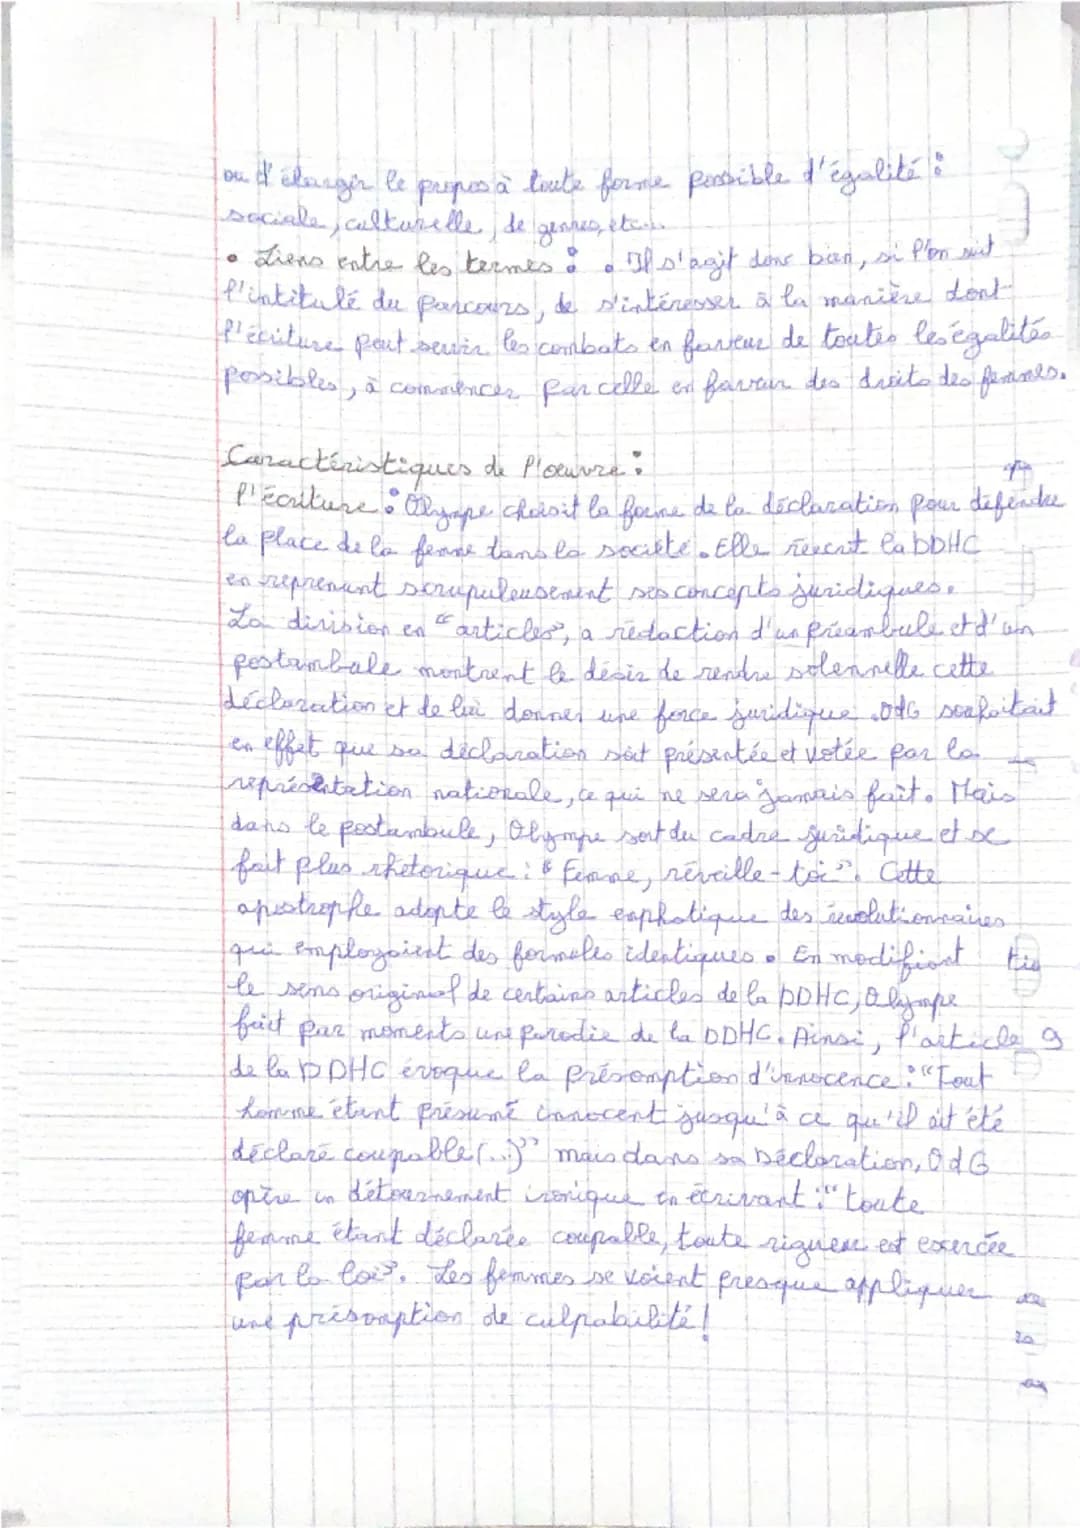 ou d'élargir le propos à toute forme possible d'égalité :
sociale, culturelle, de genres, etc...
• Liens entre les termes : • Il s'agit donc bien, si l'on suit
l'intitulé du parcours, de s'intéresser à la manière dont
l'écriture peut servir les combats en faveur de toutes les égalités
possibles, à commencer par celle en faveur des droits des femmes.
Caractéristiques de l'œuvre :
l'écriture : Olympe choisit la forme de la déclaration pour défendre
la place de la femme dans la société. Elle réécrit la DDHC
en reprenant scrupuleusement ses concepts juridiques.
La division en "articles", a rédaction d'un préambule et d'un
postambule montrent le désir de rendre solennelle cette
déclaration et de lui donner une force juridique. OdG souhaitait
en effet que sa déclaration soit présentée et votée par la
représentation nationale, ce qui ne sera jamais fait. Mais
dans le postambule, Olympe sort du cadre juridique et se
fait plus rhétorique : "Femme, réveille-toi". Cette
apostrophe adopte le style emphatique des révolutionnaires
qui employaient des formules identiques. En modifiant
le sens original de certains articles de la DDHC, Olympe
fait par moments une parodie de la DDHC. Ainsi, l'article 9
de la DDHC évoque la présomption d'innocence : "Tout
homme étant présumé innocent jusqu'à ce qu'il ait été
déclaré coupable (...)" mais dans sa Déclaration, OdG
opère un détournement ironique en écrivant : "toute
femme étant déclarée coupable, toute rigueur est exercée
par la loi". Les femmes se voient presque appliquer
une présomption de culpabilité !